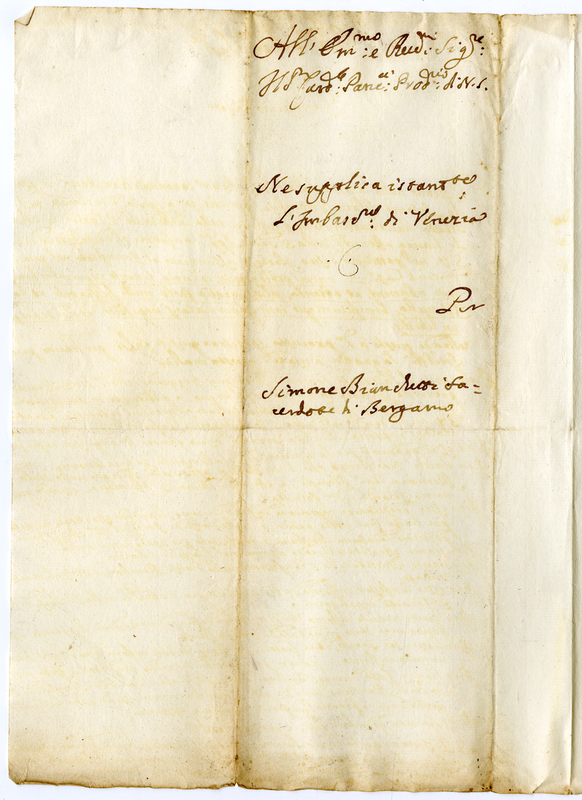 All' Em:mo e Reu:mi Sig:re
Il S:r Card:le Panc:ci Prod:rio di N.S.
Ne supplica istantte
L'Imbasc:re di Venezia
Per
Simone Bianchetti Sa=
cerdote di Bergamo